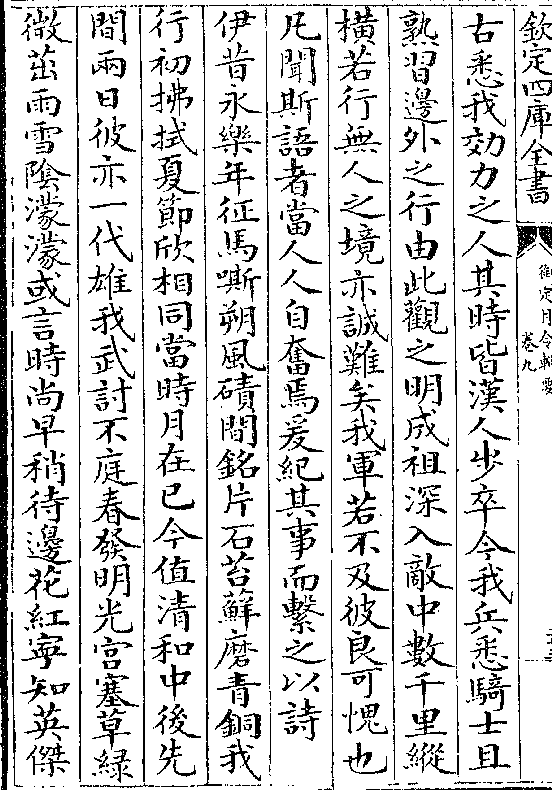 欽定四庫全書
御定月令輯要
卷九
古悉我効力之人其時皆漢人步卒今我兵悉騎士且
熟習邊外之行由此觀之明成祖深入敵中數千里縱
橫若行無人之境亦誠難矣我軍若不及彼良可愧也
凡聞斯語者當人人自奮焉爰紀其事而繫之以詩
伊昔永樂年征馬嘶朔風磧間銘片石苔蘚磨青銅我
行初拂拭夏節欣相同當時月在巳今值清和中後先
間兩日彼亦一代雄我武討不庭春發明光宫塞草緑
微茁雨雪陰濛濛或言時尚早稍待邊花紅寜知英傑